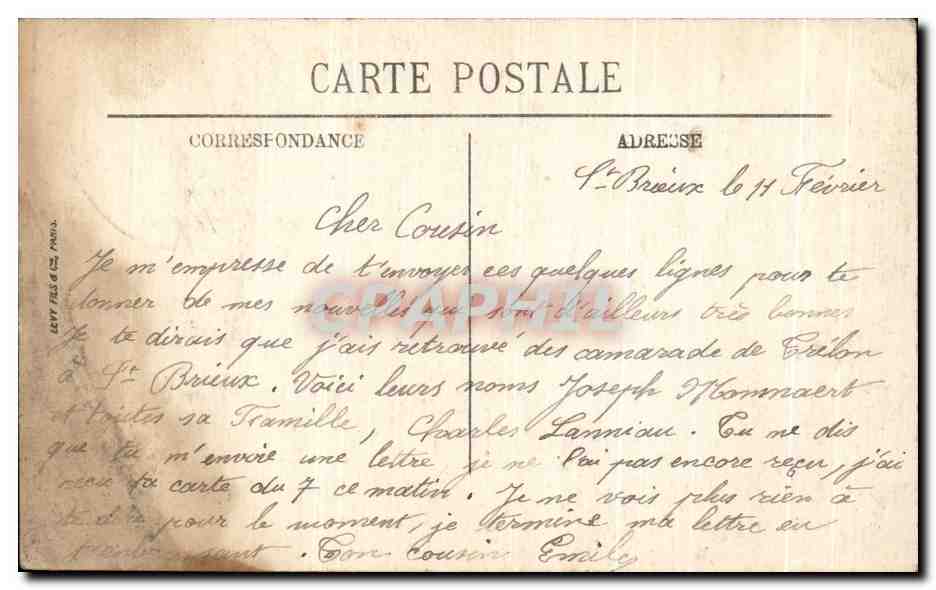 CARTE POSTALE
CORRESPONDANCE
ADRESSE
St Brieux le 11 Février
Cher Cousin
Je m'empresse de t'envoyer ces quelques lignes pour te
donner de mes nouvelles qui sont d'ailleurs très bonnes
Je te dirais que j'ais rétrouvé des camarade de Trélon
à St Brieux. Voici leurs noms Joseph Mommaert
et toutes sa Framille, Charles Lanniau. Tu ne dis
que tu m'envoie une lettre, je ne l'ai pas encore reçu, j'ai
reçu ta carte du 7 ce matin. Je ne vois plus rien à
te dire pour le moment, je termine ma lettre en
t'embrassant. Ton cousin Emile
LEVY FILS & Cie, PARIS.
CPAPHIL